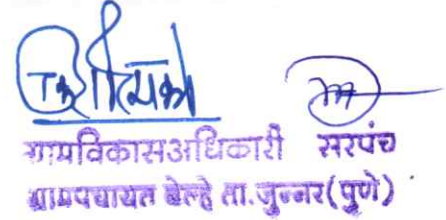 ग्रामविकासअधिकारी सरपंच
ग्रामपंचायत बेल्हे ता.जुन्नर(पुणे)